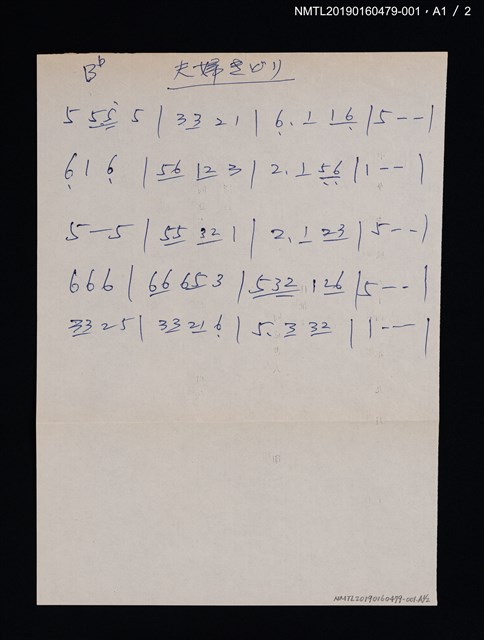 NMTL20190160479-001 · A1 / 2
B♭ 夫婦きどり
5 555 5 | 33 21 | 6. 1 16 | 5 - - |
6 1 6 | 56 12 3 | 2. 1 56 | 1 - - |
5 - 5 | 55 32 1 | 2. 1 23 | 5 - - |
6 6 6 | 66 65 3 | 532 126 | 5 - - |
33 25 | 33 21 6 | 5. 3 32 | 1 - - - |
NMTL20190160479-001.A1/2